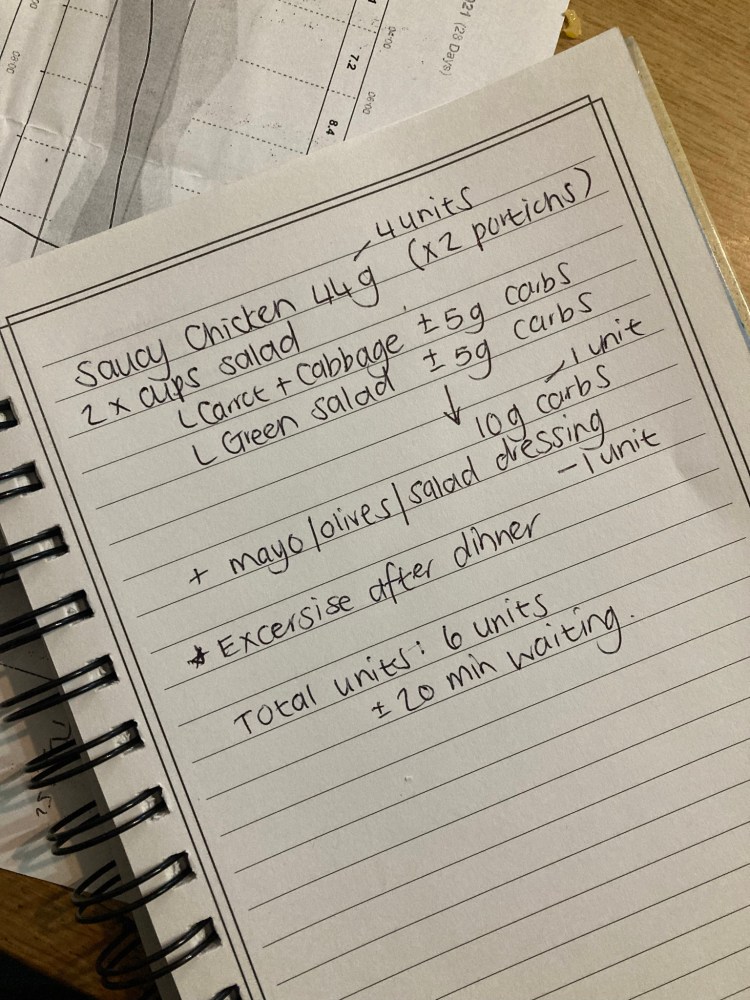 021 (28 Days)
04:00
7.2
06:00
8.4
08:00
4 units
Saucy Chicken 44g (x2 portions)
2 x cups salad
Carrot + Cabbage ± 5g carbs
Green salad ± 5g carbs
↓ 1 unit
10g carbs
+ mayo/olives/salad dressing
-1 unit
* Excersise after dinner
Total units: 6 units
± 20 min waiting.